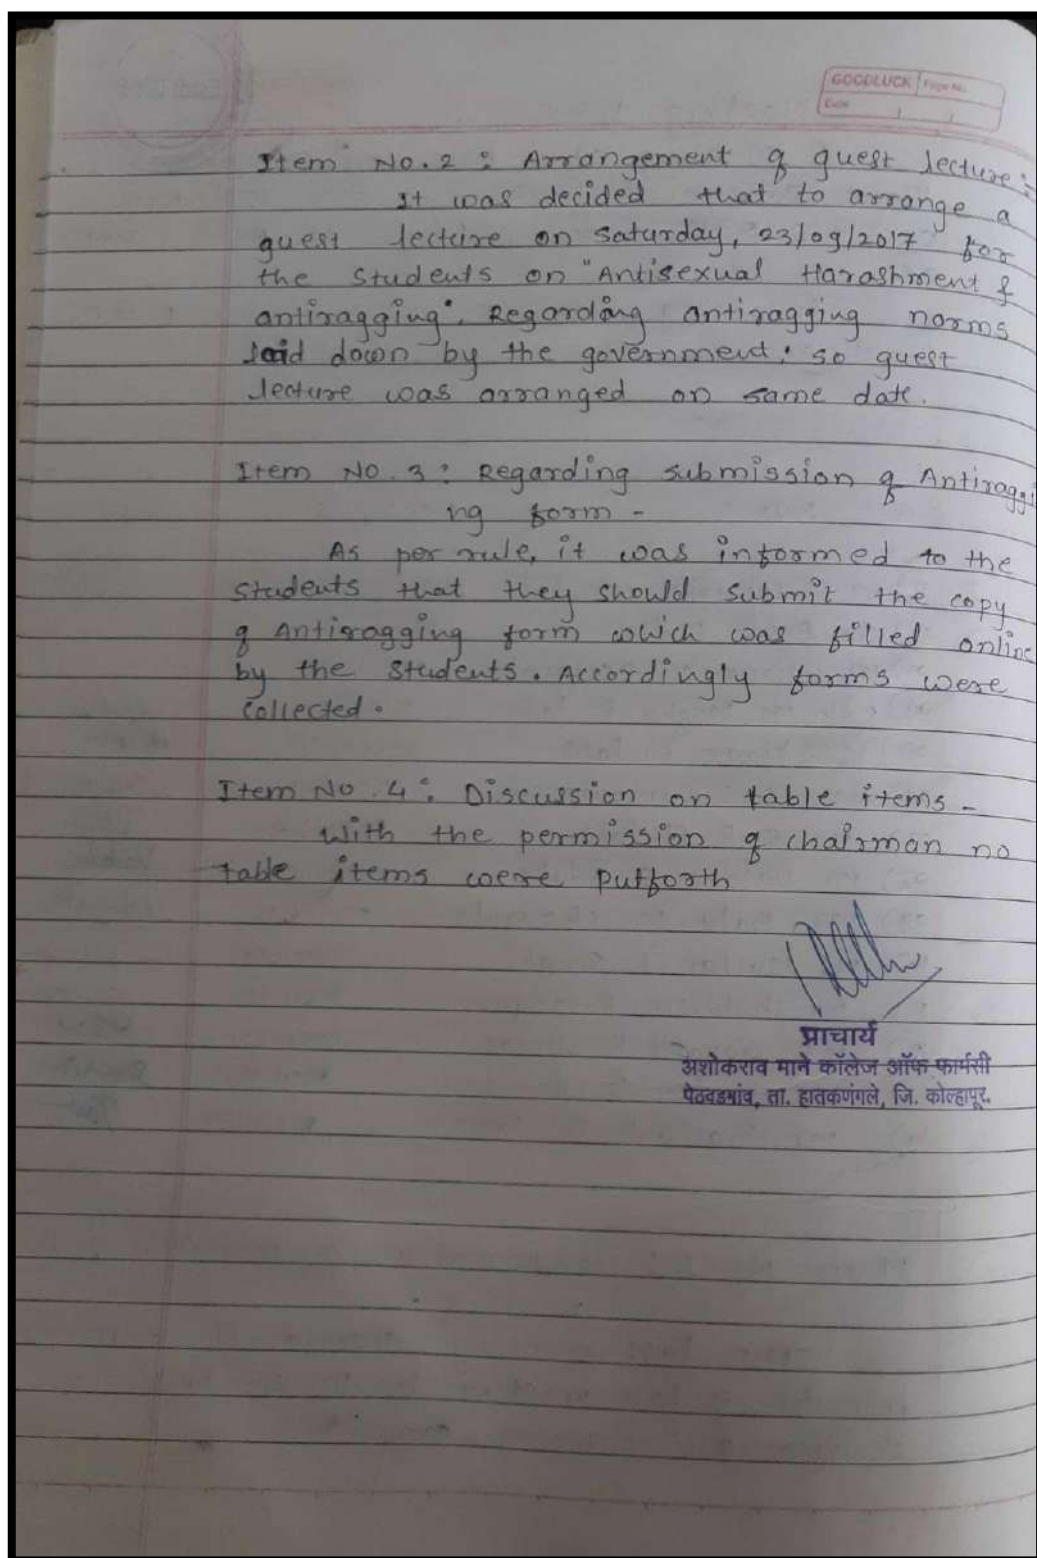 GOODLUCK Page No.
Date
Item No. 2 : Arrangement of guest lecture :-
It was decided that to arrange a
guest lecture on Saturday, 23/09/2017 for
the students on "Antisexual Harashment &
antiragging". Regarding antiragging norms
laid down by the government. so guest
lecture was arranged on same date.
Item No. 3 : Regarding submission of Antiraggi
ng form -
As per rule, it was informed to the
students that they should submit the copy
of Antiragging form which was filled online
by the students. Accordingly forms were
collected.
Item No. 4 : Discussion on table items -
With the permission of chairman no
table items were putforth
प्राचार्य
अशोकराव माने कॉलेज ऑफ फार्मसी
पेठवडगांव, ता. हातकणंगले, जि. कोल्हापूर.